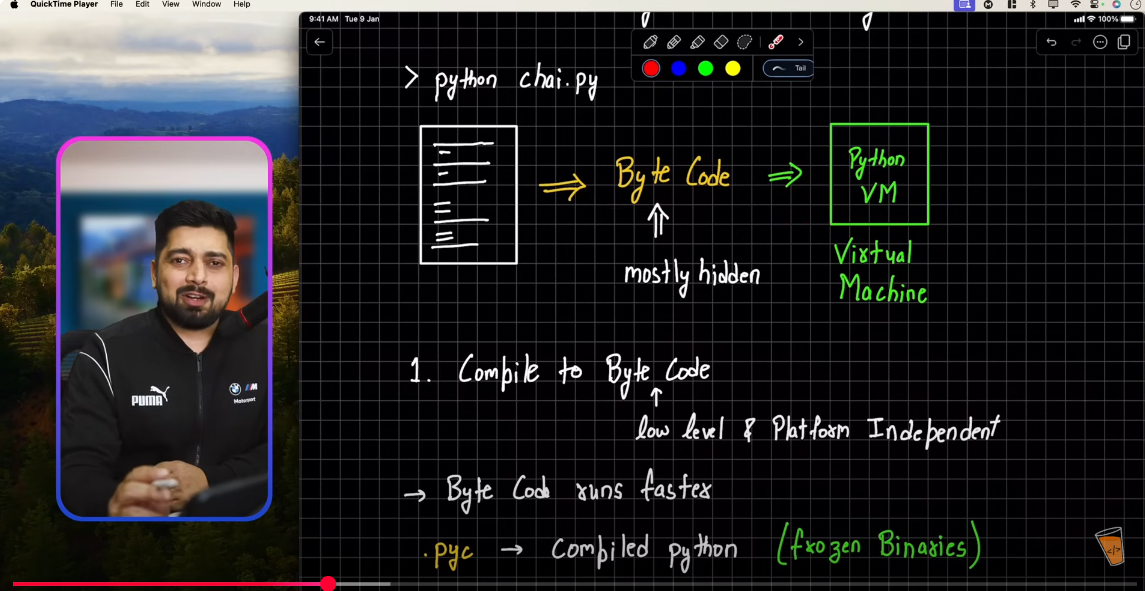 QuickTime Player File Edit View Window Help
9:41 AM Tue 9 Jan
100%
Tail
> python chai.py
Byte Code
Python
VM
mostly hidden
Virtual
Machine
1. Compile to Byte Code
low level & Platform Independent
→ Byte Code runs faster
.pyc → Compiled python (frozen Binaries)
PUMA
M
Motorsport
</>